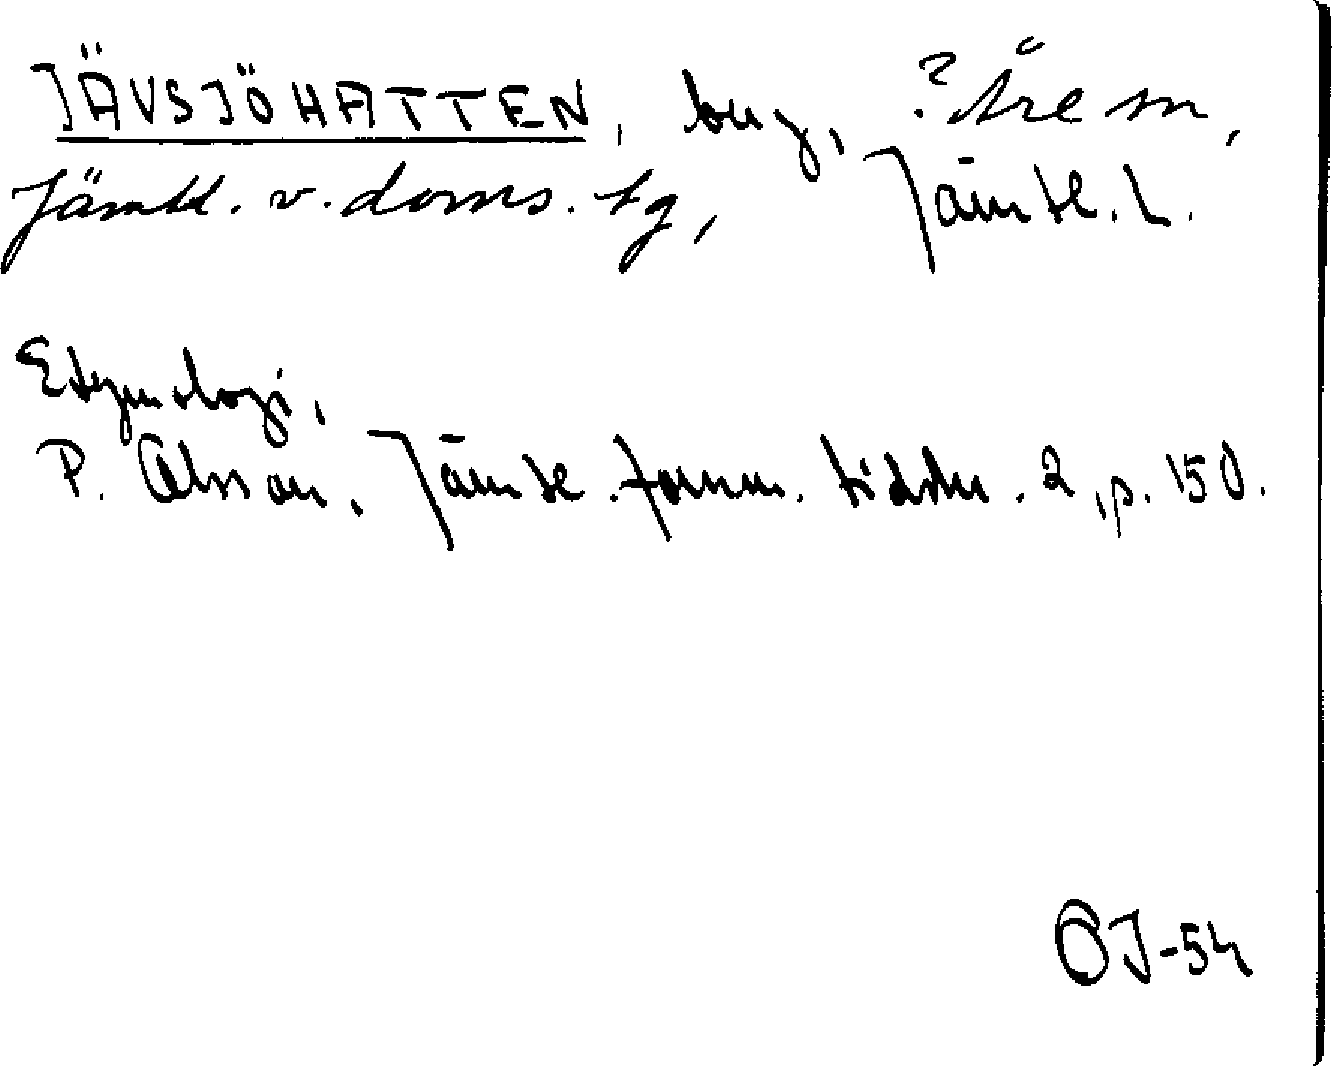 JÄVSJÖHATTEN, berg, ?Åre sn,
Jämtl. v. doms. tg, Jämtl. L.
Etymologi,
P. Olsson, Jämtl. fornm. tidskr. 2, p. 150.
ÖJ-54